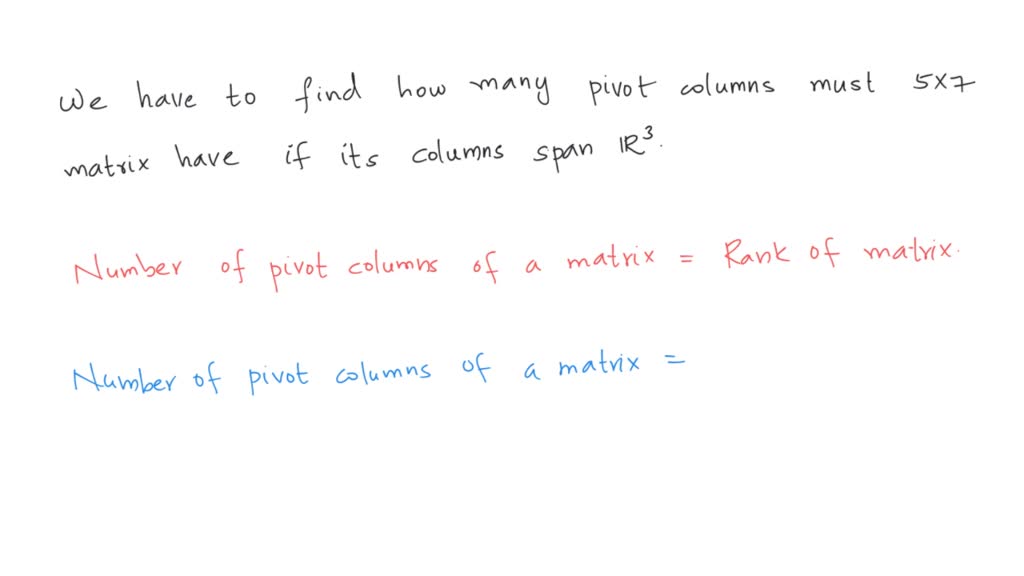 We have to find how many pivot columns must 5×7
matrix have if its columns span ℝ³.
Number of pivot columns of a matrix = Rank of matrix.
Number of pivot columns of a matrix =